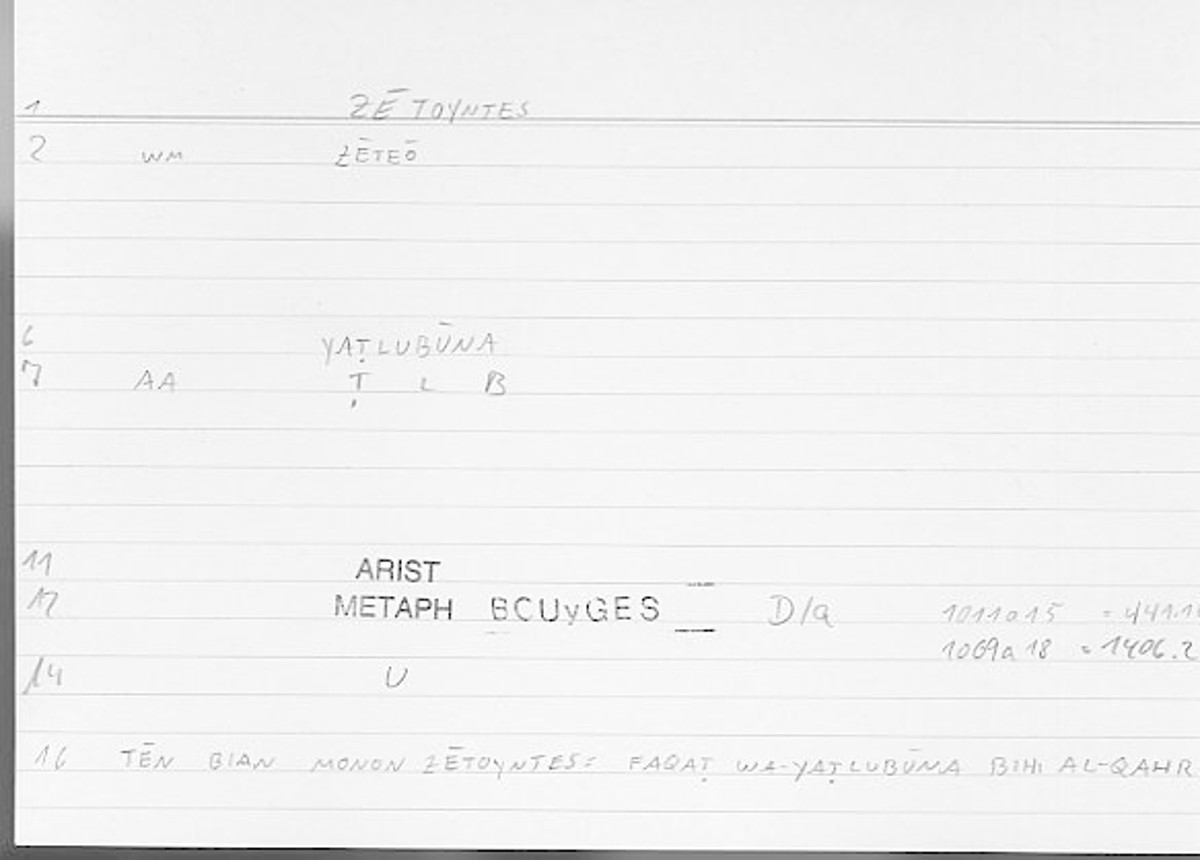 1 ZĒTOYNTES
2 WM ZĒTEŌ
6 YAṬLUBŪNA
7 AA Ṭ L B
11 ARIST
12 METAPH BCUyGES D/a 1011a15 = 441.1
1069a18 = 1406.2
14 U
16 TĒN BIAN MONON ZĒTOYNTES: FAQAṬ WA-YAṬLUBŪNA BIHI AL-QAHR